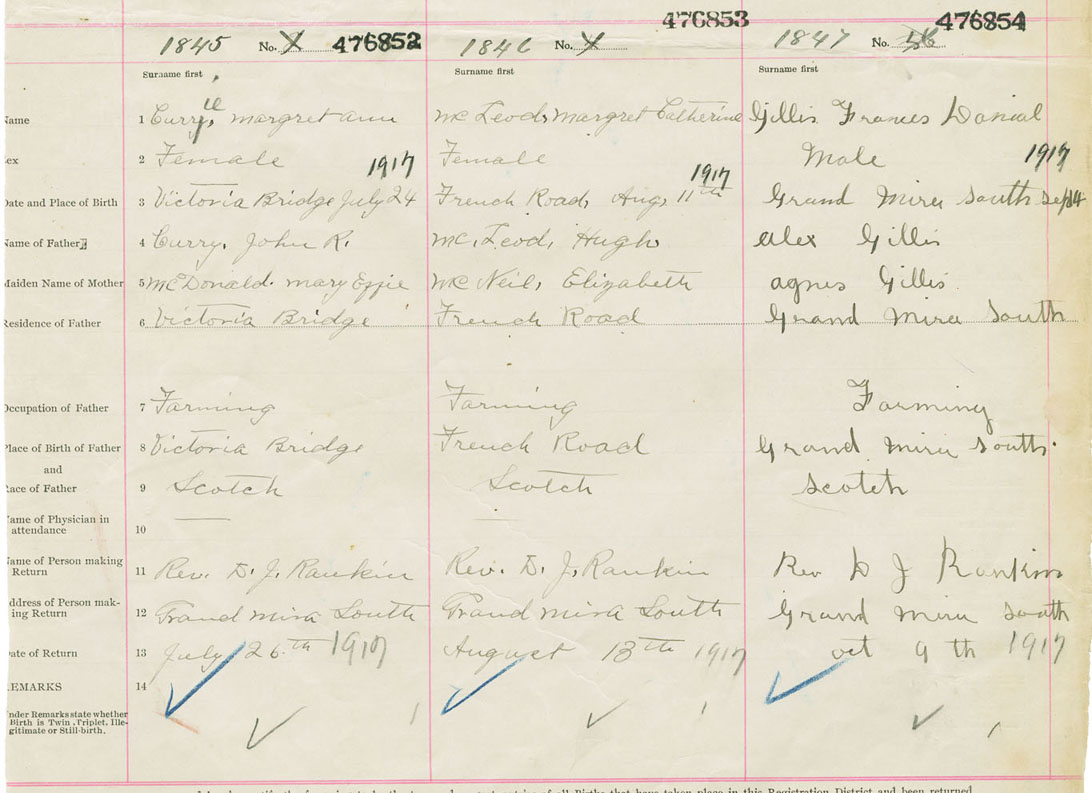 476853
476854
1845 No. X 476852 1846 No. X 1847 No.
Surname first Surname first Surname first
ie
Name 1 Curry, Margret Ann Mc Leod, Margret Catherine Gillis Frances Danial
Sex 2 Female Female Male
1917 1917 1917
Date and Place of Birth 3 Victoria Bridge July 24 French Road, Aug, 11th Grand Mira South Sept 14
Name of Father 4 Curry, John R. Mc, Leod, Hugh alex Gillis
Maiden Name of Mother 5 McDonald. mary Effie Mc Neil, Elizabeth agnes Gillis
Residence of Father 6 Victoria Bridge French Road Grand Mira South
Occupation of Father 7 Farming Farming Farming
Place of Birth of Father 8 Victoria Bridge French Road Grand Mira South.
and
Race of Father 9 Scotch Scotch Scotch
Name of Physician in
attendance 10 —
Name of Person making
Return 11 Rev. D. J. Rankin Rev. D. J. Rankin Rev D J Rankin
Address of Person mak-
ing Return 12 Grand mira South Grand mira South Grand Mira South
Date of Return 13 July 26.th 1917 August 13th 1917 oct 9 th 1917
REMARKS 14
Under Remarks state whether
Birth is Twin, Triplet, Ille-
gitimate or Still-birth.
of all Births that have taken place in this Registration District and been returned